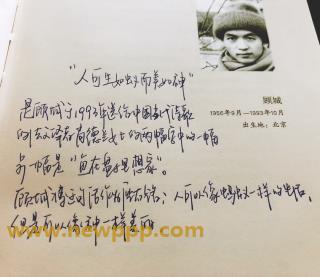 "人可生如蚁而美如神"
顾城
1956年9月—1993年10月
出生地：北京
是顾城于1993年送给中国新诗歌
的法文译者尚德兰女士的两幅字中的一幅
另一幅是"鱼在盘子里想家"。
顾城将这句话作：人可以像蚂蚁一样的生活，
但是可以像神一样美丽
www.newppp.com